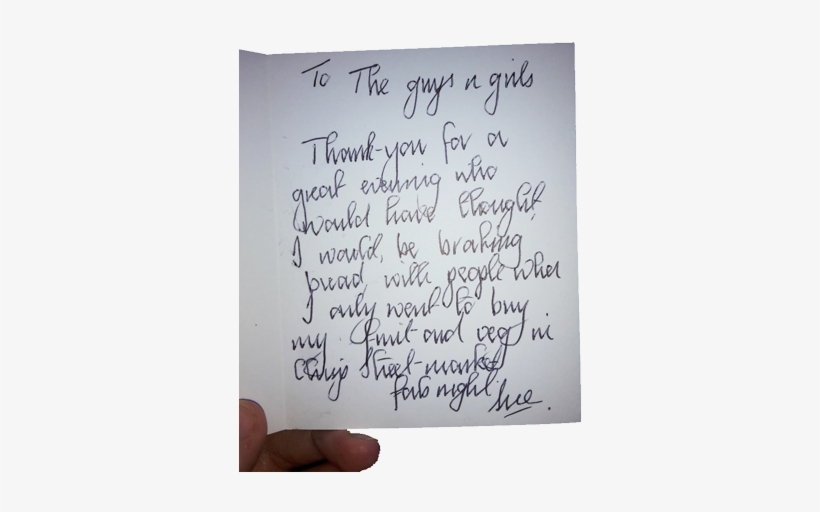 To The guys n girls
Thank-you for a
great evening who
would have thought
I would, be braking
bread, with people when
I only went to buy
my fruit and veg in
Street-market
fab night.
Sue.